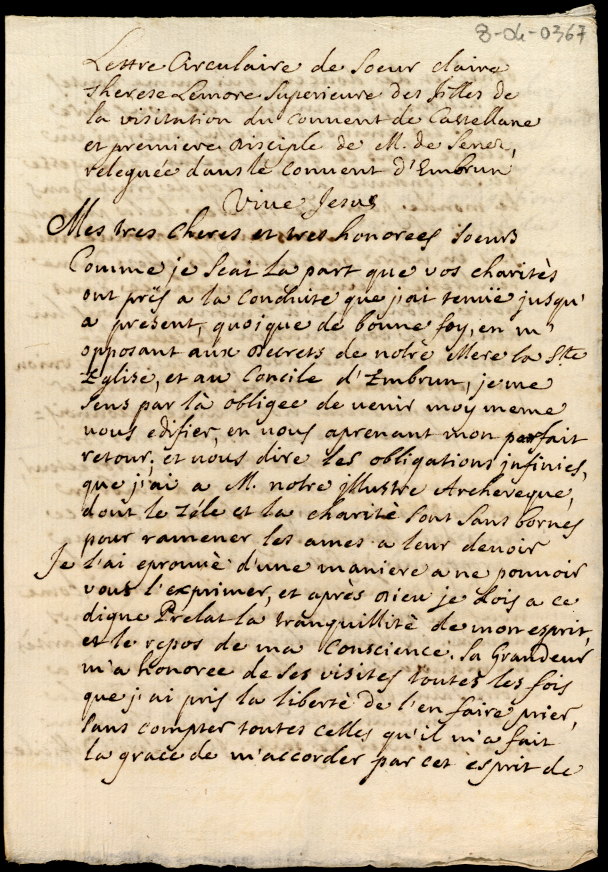 8-04-0367
Lettre Circulaire de Soeur claire
therese Lemore Superieure des filles de
la visitation du Convent de Castellane
et premiere disciple de M. de Senez,
releguée dans le Convent d'Embrun
Vive Jesus
Mes tres cheres et tres honorees soeurs
Comme je scai la part que vos charités
ont pris a la Conduite que j'ai tenuë jusqu'
a present, quoique de bonne foy, en m'
opposant aux decrets de notre Mere la Ste
Eglise, et au Concile d'Embrun, je me
sens par là obligee de venir moy meme
vous edifier, en vous aprenant mon parfait
retour, et vous dire les obligations infinies,
que j'ai a M. notre illustre Archeveque,
dont le Zéle et la charité sont sans bornes
pour ramener les ames a leur devoir
Je l'ai eprouvé d'une maniere a ne pouvoir
vous l'exprimer, et après dieu je dois a ce
digne Prelat la tranquillité de mon esprit,
et le repos de ma Conscience. Sa Grandeur
m'a honoree de ses visites toutes les fois
que j'ai pris la liberté de l'en faire prier,
sans compter toutes celles qu'il m'a fait
la grace de m'accorder par cet esprit de